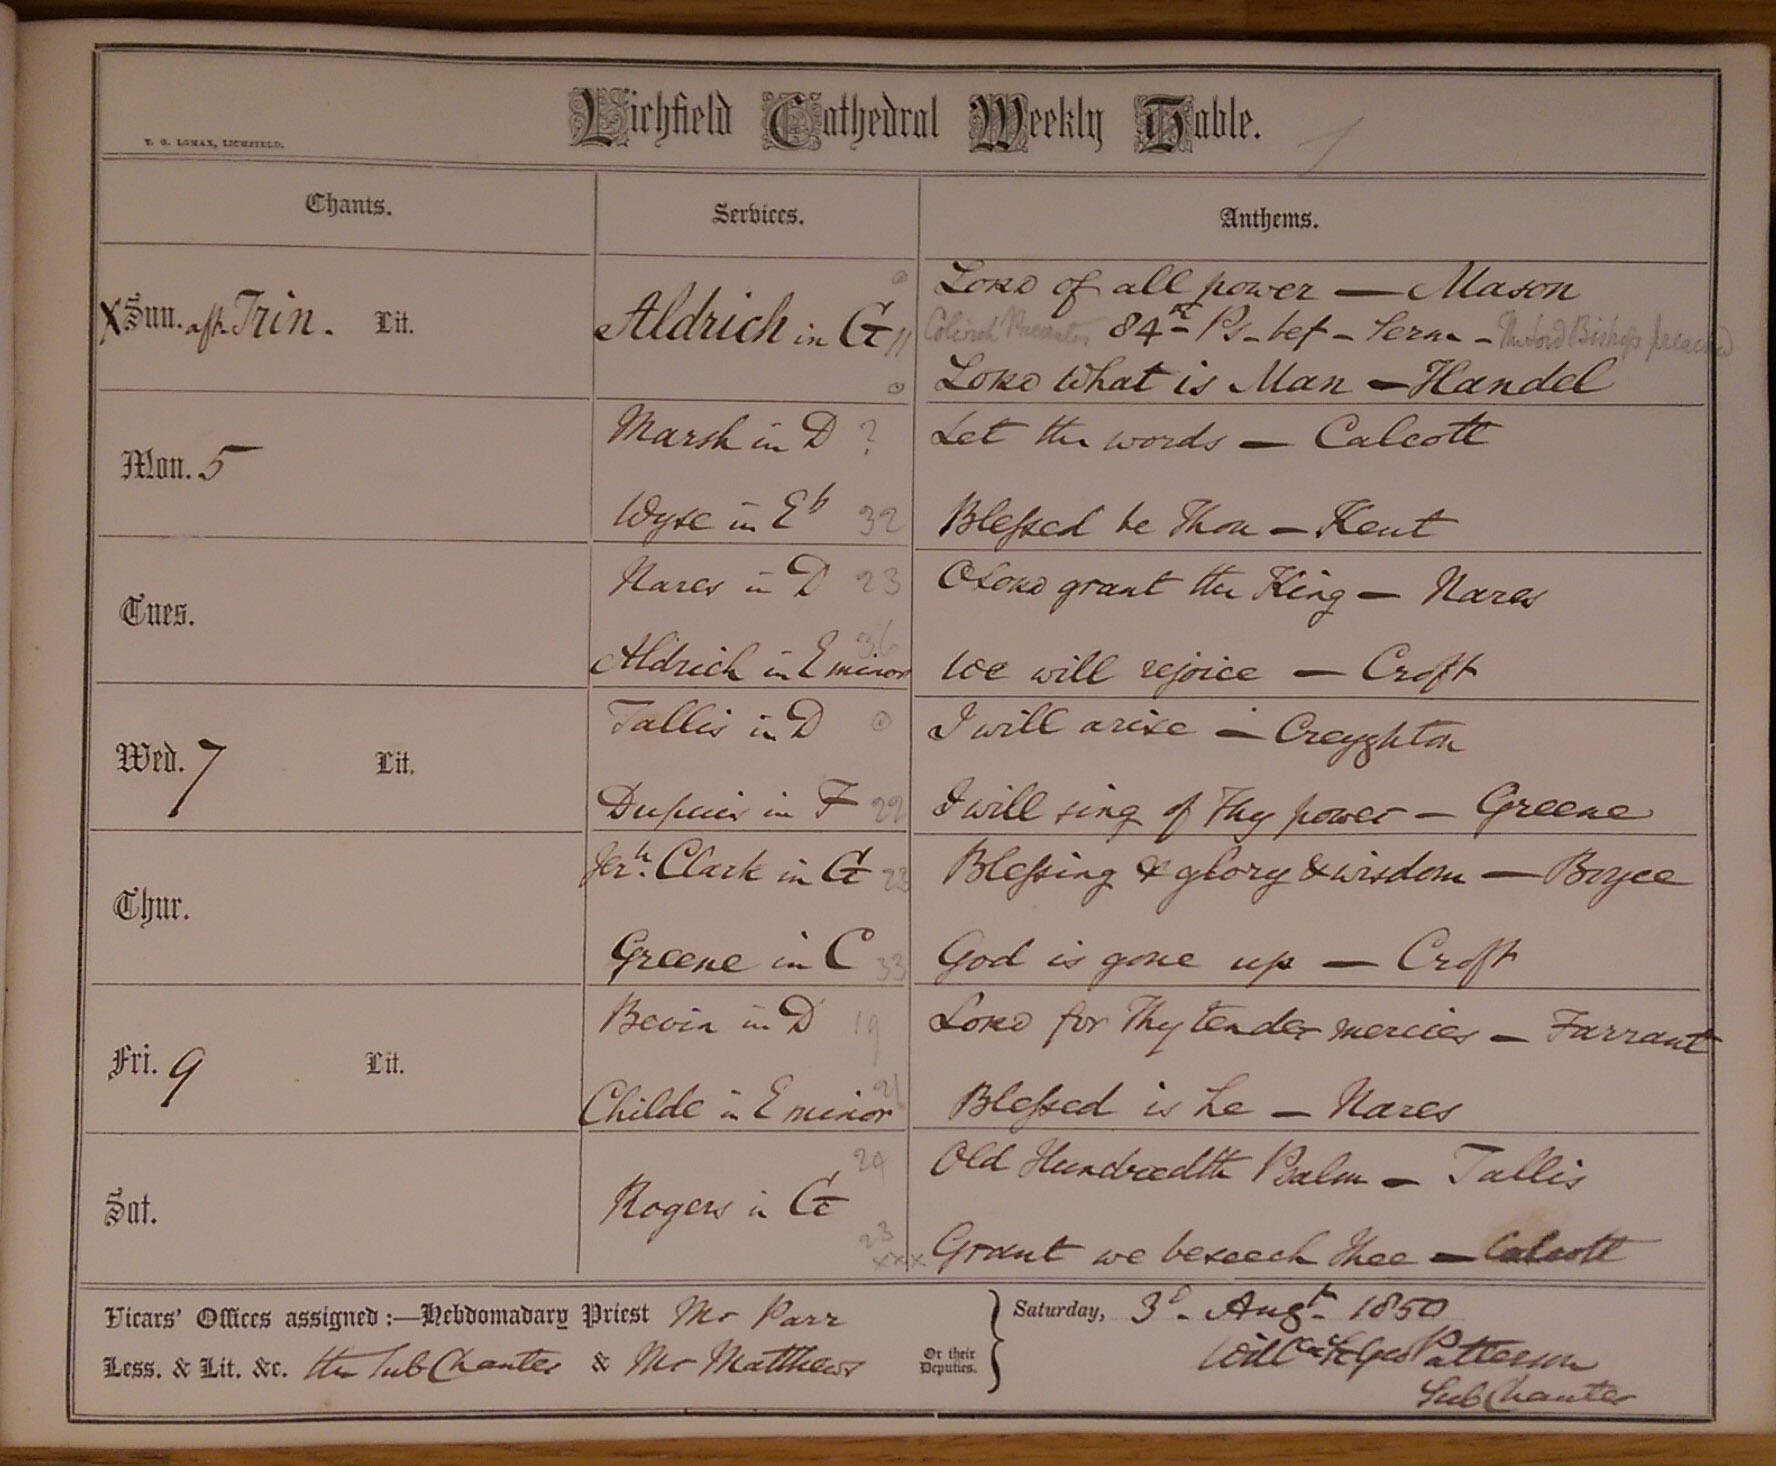 Lichfield Cathedral Weekly Table.
T. G. LOMAX, LICHFIELD.
Chants. Services. Anthems.
Lord of all power — Mason
X Sun. aft Trin. Lit. Aldrich in G 84th Ps. bef - Serm - The Lord Bishop preached
Lord what is Man — Handel
Marsh in D ? Let the words — Calcott
Mon. 5
Wyse in E♭ 32 Blessed be Thou — Kent
Nares in D 23 O Lord grant the King — Nares
Tues.
36
Aldrich in E minor We will rejoice — Croft
Tallis in D I will arise — Creyghton
Wed. 7 Lit.
Dupuis in F 22 I will sing of Thy power — Greene
Jerh. Clark in G 23 Blessing & glory & wisdom — Boyce
Thur.
Greene in C 33 God is gone up — Croft
Bevin in D 19 Lord for Thy tender mercies — Farrant
Fri. 9 Lit.
21
Childe in E minor Blessed is he — Nares
24 Old Hundredth Psalm — Tallis
Sat. Rogers in G
23
xxx Grant we beseech Thee — Calcott
Vicars' Offices assigned :—Hebdomadary Priest Mr Parr
Less. & Lit. &c. the Sub Chanter & Mr Matthews
Or their
Deputies.
Saturday, 3d. Augt. 1850
Patterson
Sub Chanter